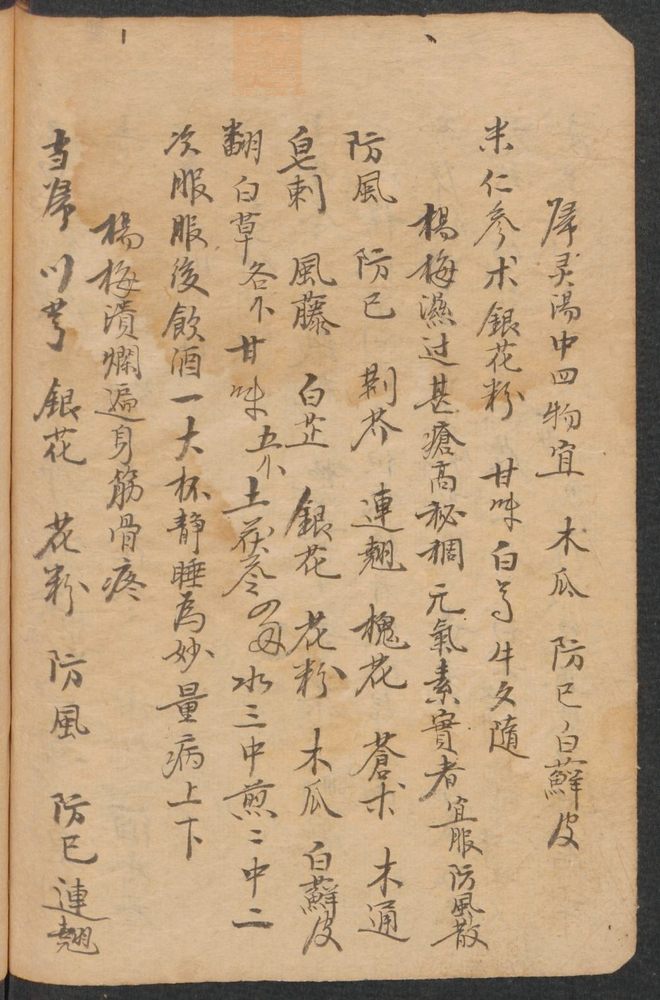 㱕灵湯中四物宜 木瓜 防已白蘚皮
米仁參术銀花粉 甘味白芍牛夕隨
楊梅濕过甚瘡高秘稠 元氣素實者宜服防風散
防風 防已 荆芥 連翹 槐花 蒼术 木通
皂刺 風藤 白芷 銀花 花粉 木瓜 白蘚皮
翻白草各 甘味五 土茯苓 水三中煎二中二
次服服後飲酒一大杯靜睡為妙量病上下
楊梅潰爛遍身筋骨疼
当㱕 川芎 銀花 花粉 防風 防已 連翹